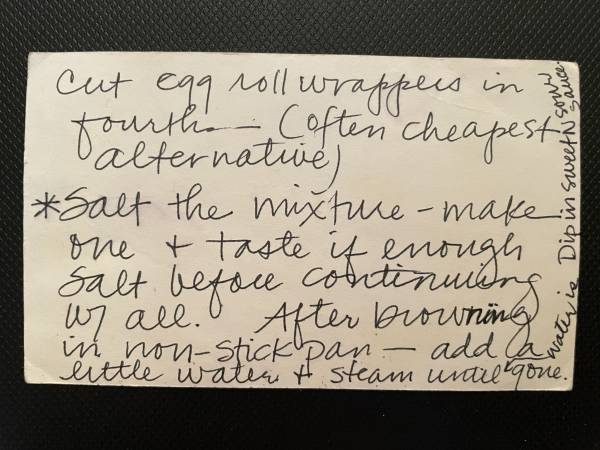 Cut egg roll wrappers in
fourths — (often cheapest
alternative)
*Salt the mixture - make
one + taste if enough
salt before continuing
w/ all. After browning
in non-stick pan — add a
little water + steam until gone.
water is
Dip in sweet N sour
sauce.